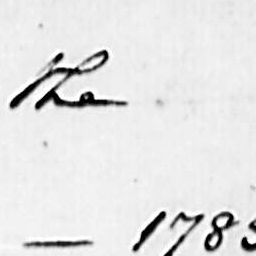 the
— 1785